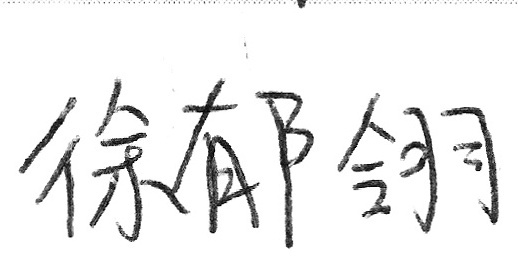 徐郁翎